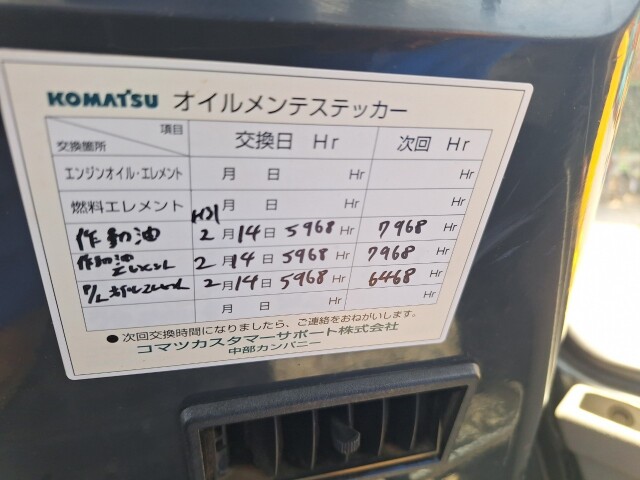 KOMATSU オイルメンテステッカー
項目 交換箇所 交換日 Hr 次回 Hr
エンジンオイル・エレメント 月 日 Hr Hr
燃料エレメント 月 日 Hr Hr
H31
作動油 2月14日 5968 Hr 7968 Hr
作動油エレメント 2月14日 5968 Hr 7968 Hr
2月14日 5968 Hr 6468 Hr
月 日 Hr Hr
●次回交換時間になりましたら、ご連絡をおねがいします。
コマツカスタマーサポート株式会社
中部カンパニー